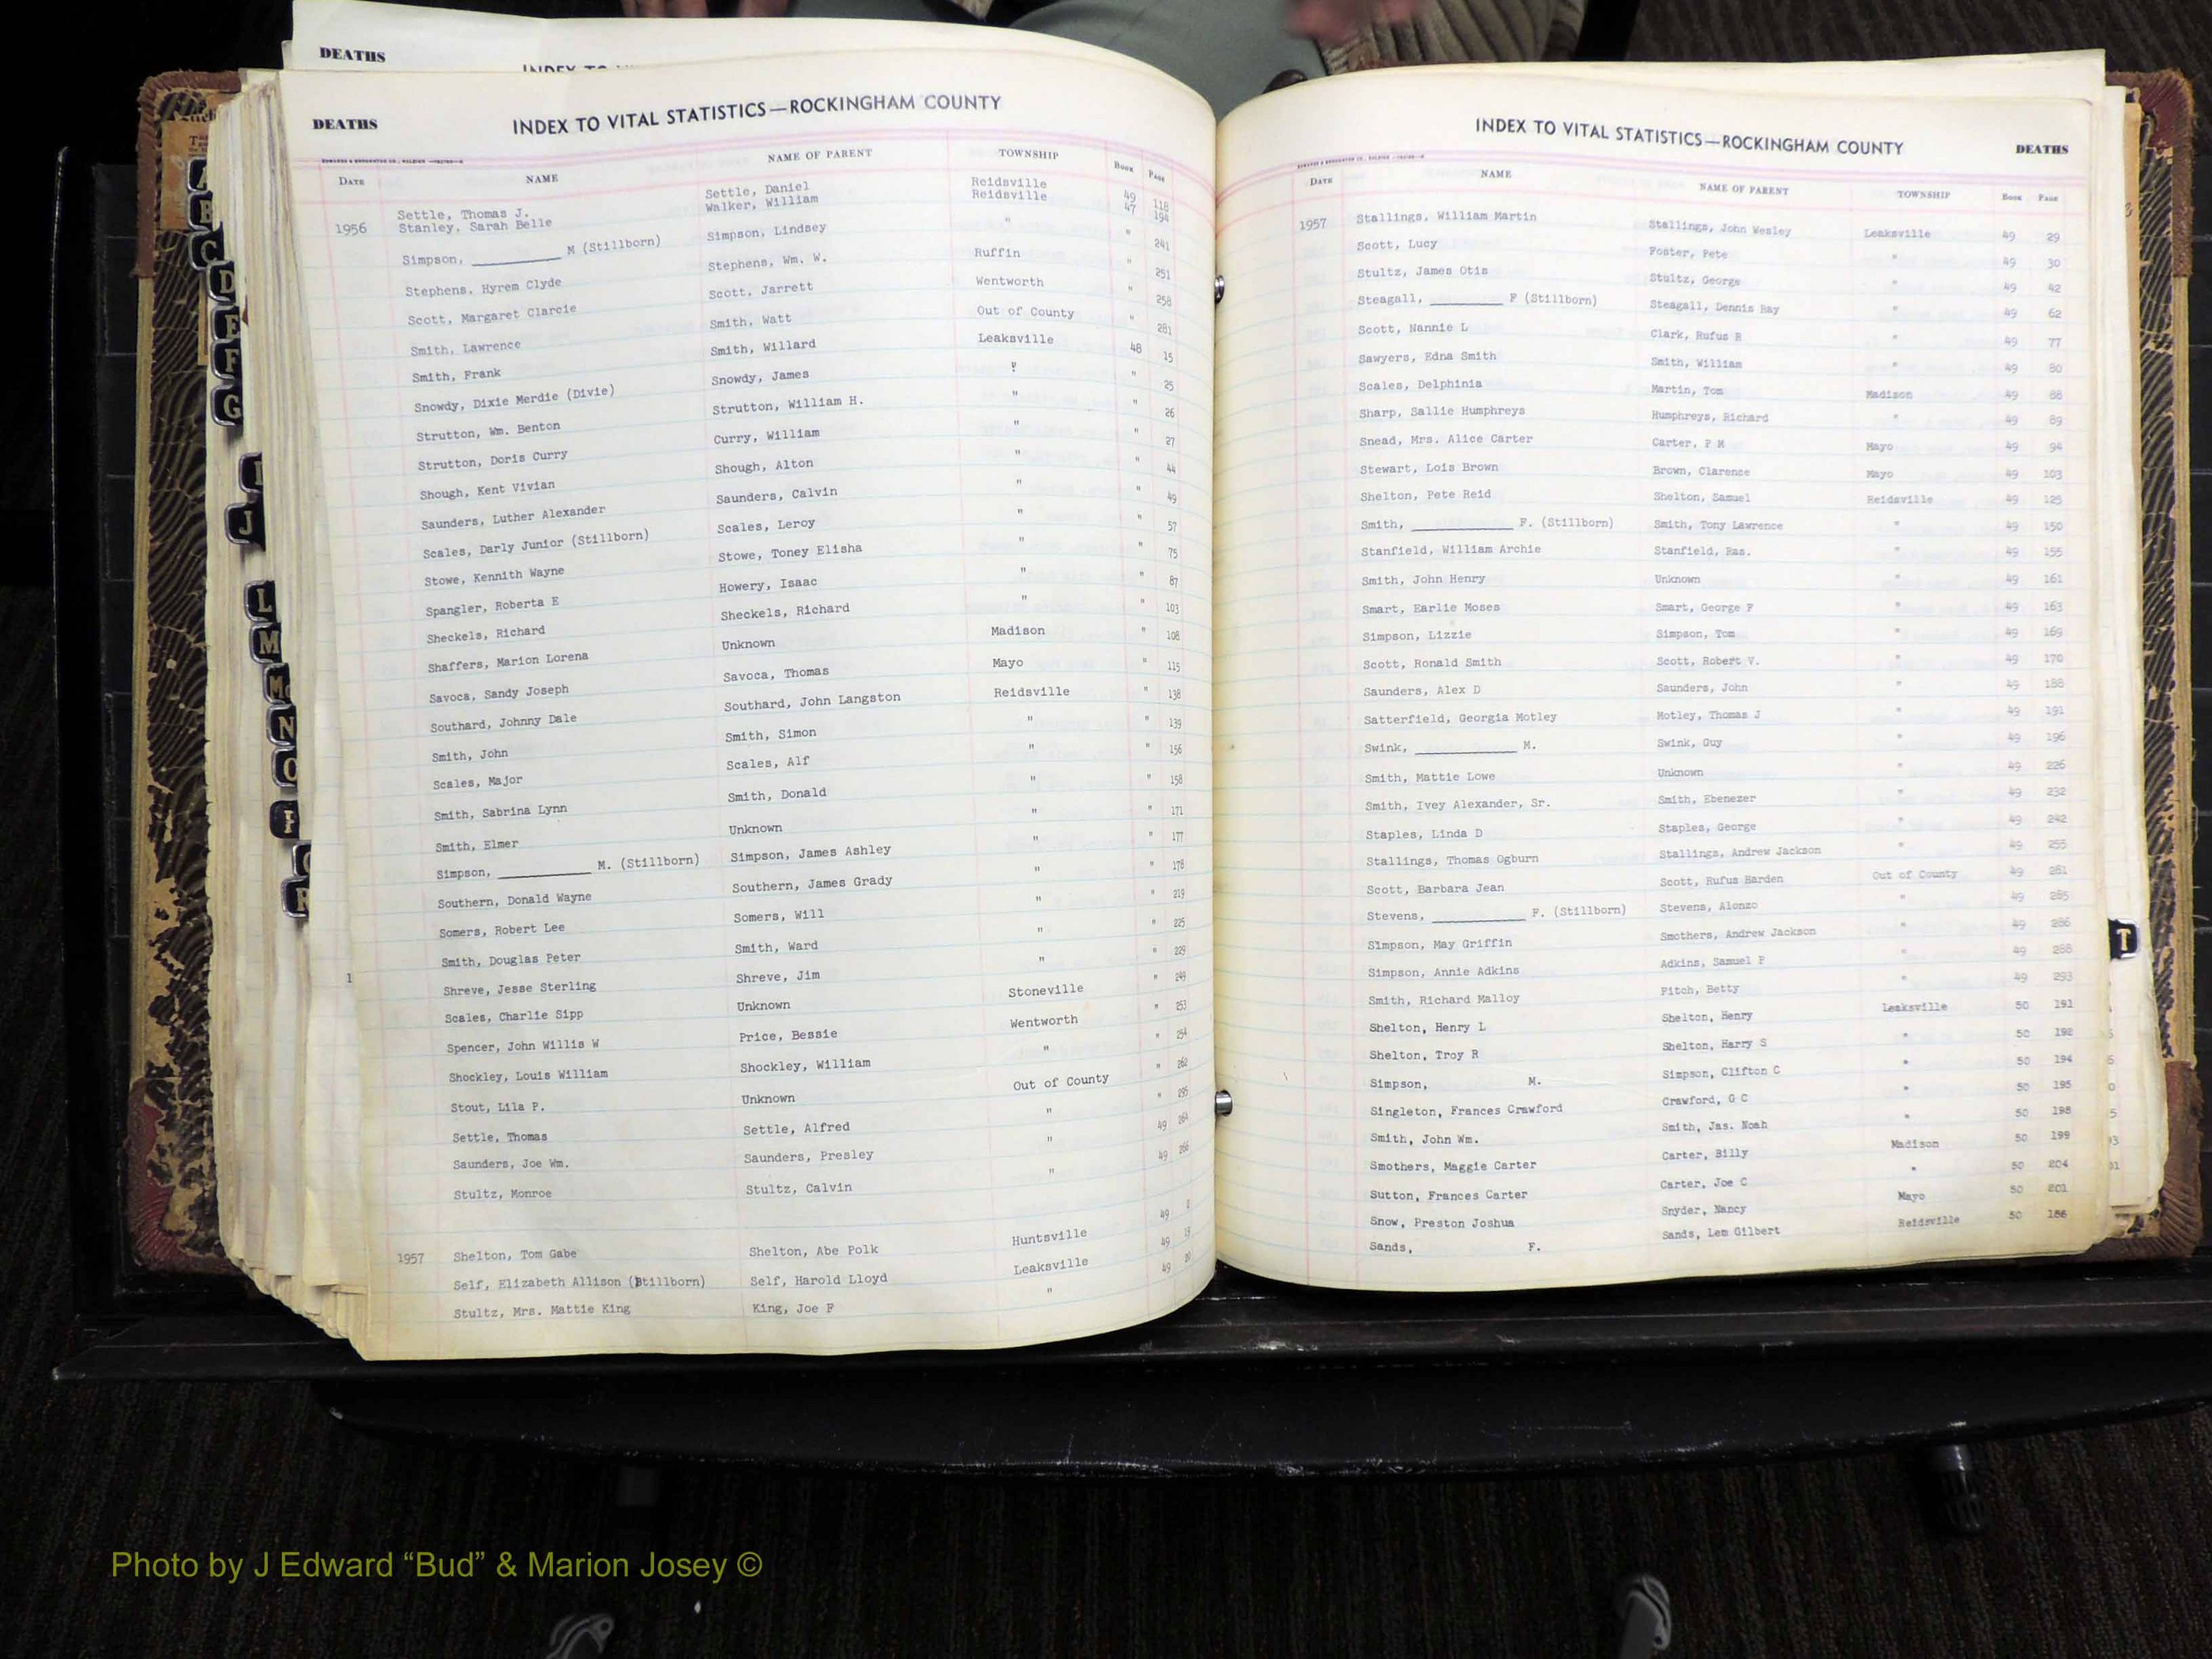 DEATHS
DEATHS
INDEX TO VITAL STATISTICS—ROCKINGHAM COUNTY
DATE NAME NAME OF PARENT TOWNSHIP BOOK PAGE
Settle, Thomas J. Settle, Daniel Reidsville 49 118
1956 Stanley, Sarah Belle Walker, William Reidsville 47 194
Simpson, __________ M (Stillborn) Simpson, Lindsey " " 241
Stephens, Hyrem Clyde Stephens, Wm. W. Ruffin " 251
Scott, Margaret Clarcie Scott, Jarrett Wentworth " 258
Smith, Lawrence Smith, Watt Out of County " 281
Smith, Frank Smith, Willard Leaksville 48 15
Snowdy, Dixie Merdie (Divie) Snowdy, James " " 25
Strutton, Wm. Benton Strutton, William H. " " 26
Strutton, Doris Curry Curry, William " " 27
Shough, Kent Vivian Shough, Alton " " 44
Saunders, Luther Alexander Saunders, Calvin " " 49
Scales, Darly Junior (Stillborn) Scales, Leroy " " 57
Stowe, Kennith Wayne Stowe, Toney Elisha " " 75
Spangler, Roberta E Howery, Isaac " " 87
Sheckels, Richard Sheckels, Richard " " 103
Shaffers, Marion Lorena Unknown Madison " 108
Savoca, Sandy Joseph Savoca, Thomas Mayo " 115
Southard, Johnny Dale Southard, John Langston Reidsville " 138
Smith, John Smith, Simon " " 139
Scales, Major Scales, Alf " " 156
Smith, Sabrina Lynn Smith, Donald " " 158
Smith, Elmer Unknown " " 171
Simpson, __________ M. (Stillborn) Simpson, James Ashley " " 177
Southern, Donald Wayne Southern, James Grady " " 178
Somers, Robert Lee Somers, Will " " 219
Smith, Douglas Peter Smith, Ward " " 225
1 Shreve, Jesse Sterling Shreve, Jim " " 229
Scales, Charlie Sipp Unknown Stoneville " 249
Spencer, John Willis W Price, Bessie Wentworth " 253
Shockley, Louis William Shockley, William " " 254
Stout, Lila P. Unknown Out of County " 262
Settle, Thomas Settle, Alfred " " 295
Saunders, Joe Wm. Saunders, Presley " 49 264
Stultz, Monroe Stultz, Calvin " 49 266
1957 Shelton, Tom Gabe Shelton, Abe Polk Huntsville 49
Self, Elizabeth Allison (Stillborn) Self, Harold Lloyd Leaksville 49
Stultz, Mrs. Mattie King King, Joe F " 49
INDEX TO VITAL STATISTICS—ROCKINGHAM COUNTY
DEATHS
DATE NAME NAME OF PARENT TOWNSHIP BOOK PAGE
1957 Stallings, William Martin Stallings, John Wesley Leaksville 49 29
Scott, Lucy Foster, Pete " 49 30
Stultz, James Otis Stultz, George " 49 42
Steagall, __________ F (Stillborn) Steagall, Dennis Ray " 49 62
Scott, Nannie L Clark, Rufus R " 49 77
Sawyers, Edna Smith Smith, William " 49 80
Scales, Delphinia Martin, Tom Madison 49 88
Sharp, Sallie Humphreys Humphreys, Richard " 49 89
Snead, Mrs. Alice Carter Carter, P M Mayo 49 94
Stewart, Lois Brown Brown, Clarence Mayo 49 103
Shelton, Pete Reid Shelton, Samuel Reidsville 49 125
Smith, __________ F. (Stillborn) Smith, Tony Lawrence " 49 150
Stanfield, William Archie Stanfield, Ras. " 49 155
Smith, John Henry Unknown " 49 161
Smart, Earlie Moses Smart, George F " 49 163
Simpson, Lizzie Simpson, Tom " 49 169
Scott, Ronald Smith Scott, Robert V. " 49 170
Saunders, Alex D Saunders, John " 49 188
Satterfield, Georgia Motley Motley, Thomas J " 49 191
Swink, __________ M. Swink, Guy " 49 196
Smith, Mattie Lowe Unknown " 49 226
Smith, Ivey Alexander, Sr. Smith, Ebenezer " 49 232
Staples, Linda D Staples, George " 49 242
Stallings, Thomas Ogburn Stallings, Andrew Jackson " 49 255
Scott, Barbara Jean Scott, Rufus Harden Out of County 49 281
Stevens, __________ F. (Stillborn) Stevens, Alonzo " 49 285
Simpson, May Griffin Smothers, Andrew Jackson " 49 286
Simpson, Annie Adkins Adkins, Samuel P " 49 288
Smith, Richard Malloy Pitch, Betty " 49 293
Shelton, Henry L Shelton, Henry Leaksville 50 191
Shelton, Troy R Shelton, Harry S " 50 192
Simpson, M. Simpson, Clifton C " 50 194
Singleton, Frances Crawford Crawford, G C " 50 195
Smith, John Wm. Smith, Jas. Noah " 50 198
Smothers, Maggie Carter Carter, Billy Madison 50 199
Sutton, Frances Carter Carter, Joe C " 50 204
Snow, Preston Joshua Snyder, Nancy Mayo 50 201
Sands, F. Sands, Lem Gilbert Reidsville 50 186
A
B
C
D
E
F
G
I
J
L
M
Mc
N
O
P
R
T
Photo by J Edward “Bud” & Marion Josey ©